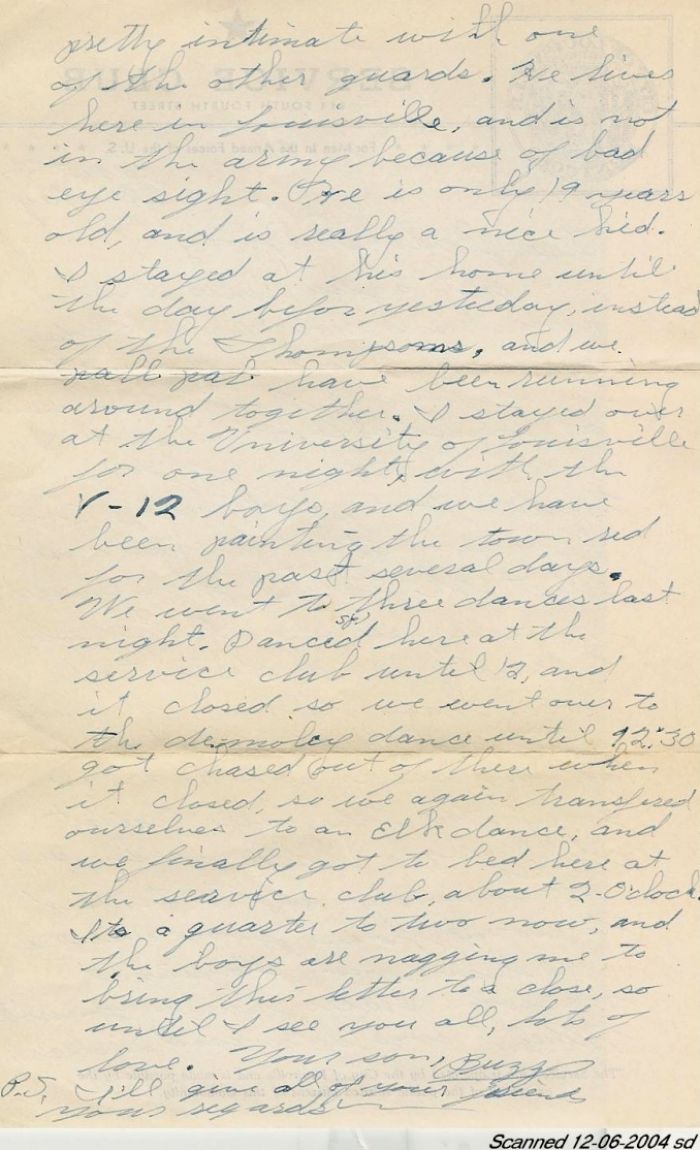 pretty intimate with one
of the other guards. He lives
here in Louisville, and is not
in the army because of bad
eye sight. He is only 19 years
old, and is really a nice kid.
I stayed at his home until
the day befor yesteday, instead
of the Thompsons, and we
have been running
around together. I stayed over
at the University of Louisville
for one night, with the
V-12 boys, and we have
been painting the town red
for the past several days.
We went to three dances last
night. Danced here at the
service club until 12, and
it closed so we went over to
the demoley dance until 12:30
got chased out of there when
it closed, so we again transfered
ourselves to an Elk dance, and
we finally got to bed here at
the searvice club, about 2-O'clock.
Its a quarter to two now, and
the boys are nagging me to
bring this letter to a close, so
until I see you all, lots of
love. Your son, Buzz
P.S. I'll give all of your friends
your regards
SERVICE CLUB
SOUTH FOURTH STREET
For Men in the Armed Forces of the U.S.
Scanned 12-06-2004 sd